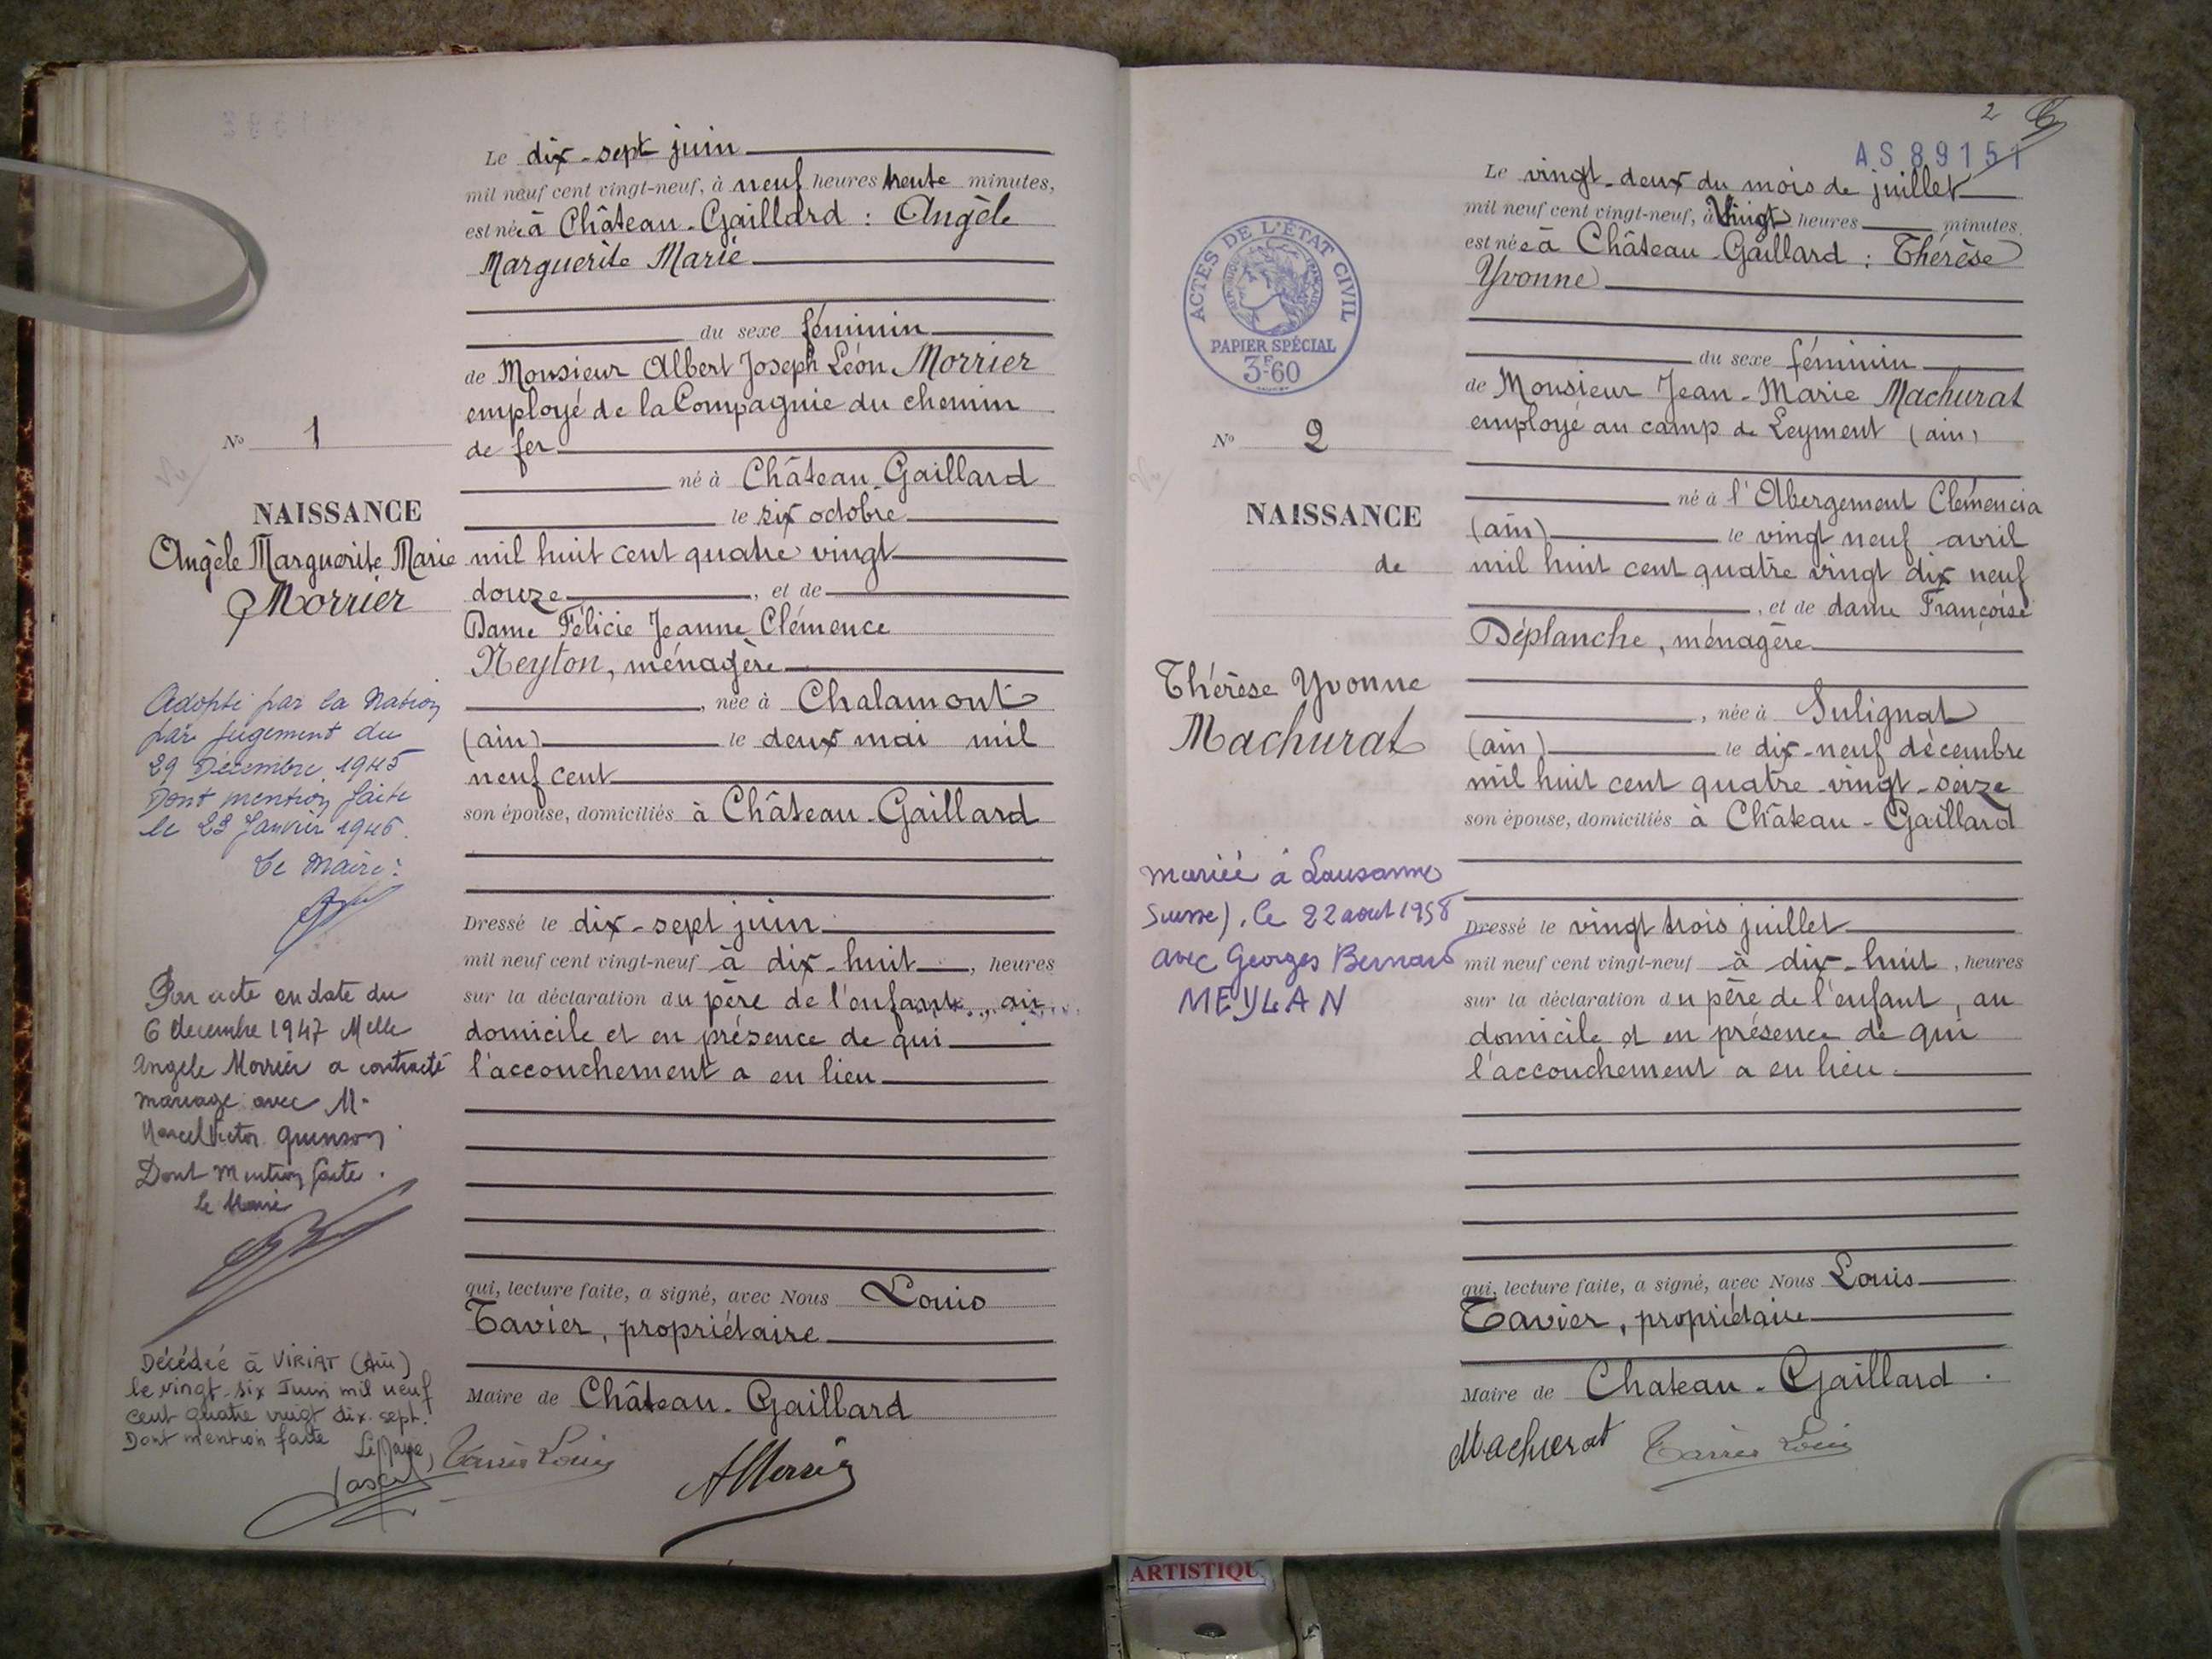 Le dix-sept juin
mil neuf cent vingt-neuf, à neuf heures trente minutes,
est née à Château-Gaillard : Angèle
Marguerite Marie
du sexe féminin
de Monsieur Albert Joseph Léon Morrier
employé de la Compagnie du chemin
de fer
né à Château-Gaillard
le six octobre
mil huit cent quatre vingt
douze, et de
Dame Félicie Jeanne Clémence
Neyton, ménagère
, née à Chalamont
(ain) le deux mai mil
neuf cent
son épouse, domiciliés à Château-Gaillard
Dressé le dix-sept juin
mil neuf cent vingt-neuf à dix-huit, heures
sur la déclaration du père de l'enfant, au
domicile et en présence de qui
l'accouchement a eu lieu
qui, lecture faite, a signé, avec Nous Louis
Tavier, propriétaire
Maire de Château-Gaillard
Tavier Louis
AMorrier
No 1
NAISSANCE
Angèle Marguerite Marie
Morrier
Adopté par la Nation
par jugement du
29 Décembre 1945
Dont mention faite
le 23 Janvier 1946.
Le Maire :
Par acte en date du
6 decembre 1947 Melle
Angele Morrier a contracté
mariage avec M.
Marcel Victor Quinson
Dont mention faite.
Le Maire
Décédée à VIRIAT (Ain)
le vingt-six Juin mil neuf
cent quatre vingt dix-sept.
Dont mention faite Le Maire,
2
AS 89151
Le vingt-deux du mois de juillet
mil neuf cent vingt-neuf, à Vingt heures minutes,
est née à Château-Gaillard : Thérèse
Yvonne
du sexe féminin
de Monsieur Jean-Marie Machurat
employé au camp de Leyment (ain)
né à l'Abergement Clémencia
(ain) le vingt neuf avril
mil huit cent quatre vingt dix neuf
, et de dame Françoise
Déplanche, ménagère
, née à Sulignat
(ain) le dix-neuf décembre
mil huit cent quatre-vingt-seize
son épouse, domiciliés à Château-Gaillard
Dressé le vingt trois juillet
mil neuf cent vingt-neuf à dix-huit, heures
sur la déclaration du père de l'enfant, au
domicile et en présence de qui
l'accouchement a eu lieu.
qui, lecture faite, a signé, avec Nous Louis
Tavier, propriétaire
Maire de Chateau-Gaillard.
Machurat Tavier Louis
ACTES DE L'ÉTAT CIVIL
RÉPUBLIQUE FRANÇAISE
PAPIER SPÉCIAL
3F60
No 2
NAISSANCE
de
Thérèse Yvonne
Machurat
mariée à Lausanne
Suisse), le 22 aout 1958
avec Georges Bernard
MEYLAN
ARTISTIQU